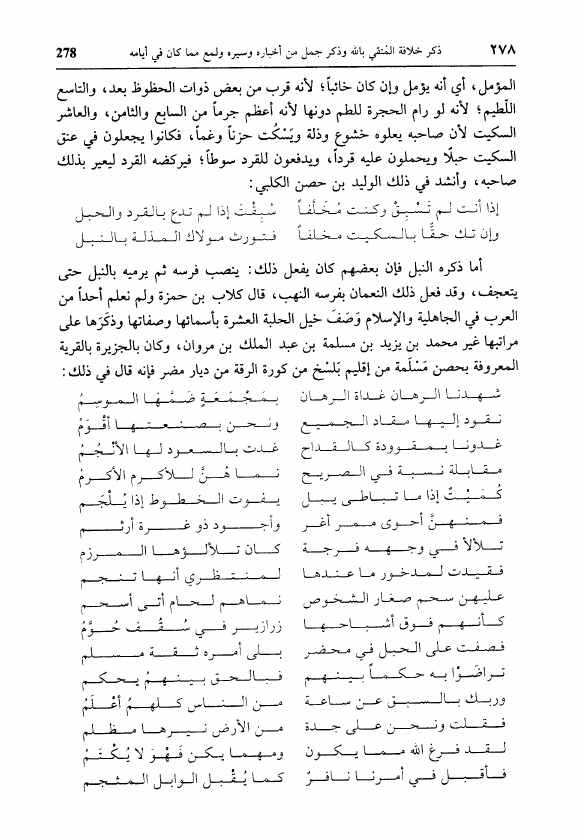 ٢٧٨ ذكر خلافة المُتقي بالله وذكر جمل من أخباره وسيره ولمع مما كان في أيامه 278
المؤمل، أي أنه يؤمل وإن كان خائباً؛ لأنه قرب من بعض ذوات الحظوظ بعد، والتاسع
اللّطيم؛ لأنه لو رام الحجرة للطم دونها لأنه أعظم جرماً من السابع والثامن، والعاشر
السكيت لأن صاحبه يعلوه خشوع وذلة ويَسْكُت حزناً وغماً، فكانوا يجعلون في عنق
السكيت حبلًا ويحملون عليه قرداً، ويدفعون للقرد سوطاً؛ فيركضه القرد ليعير بذلك
صاحبه، وأنشد في ذلك الوليد بن حصن الكلبي:
إذا أنت لم تَسْبِقْ وكنت مُخَلَّفاً سُبِقْتَ إذا لم تدع بالقرد والحبل
وإن تك حقًّا بالسكيت مخلفاً فتورث مولاك المذلة بالنبل
أما ذكره النبل فإن بعضهم كان يفعل ذلك: ينصب فرسه ثم يرميه بالنبل حتى
يتعجف، وقد فعل ذلك النعمان بفرسه النهب، قال كلاب بن حمزة ولم نعلم أحداً من
العرب في الجاهلية والإسلام وَصَفَ خيل الحلبة العشرة بأسمائها وصفاتها وذكَرَها على
مراتبها غير محمد بن يزيد بن مسلمة بن عبد الملك بن مروان، وكان بالجزيرة بالقرية
المعروفة بحصن مَسْلَمة من إقليم بَلْسْخ من كورة الرقة من ديار مضر فإنه قال في ذلك:
شهدنا الرهان غداة الرهان بمَجْمَعَةٍ ضَمَّهَا الموسِمُ
نقود إليها مقاد الجميع ونحن بصنعتها أقْوَمُ
غدونا بمقوودة كالقداح غدت بالسعود لها الأنْجُمُ
مقابلة نسبة في الصريح نماهُنَّ للأكرم الأكرمُ
كُمَيْتٌ إذا ما تباطى يبل يفوت الخطوط إذا يُلْجَم
فمنهنَّ أحوى ممر أغر وأجود ذو غرة أرثم
تلألأ في وجهه فرجة كان تلألؤها المرزم
فقيدت لمدخور ما عندها لمنتظري أنها تنجم
عليهن سحم صغار الشخوص نماهم لحام أتى أسحم
كأنهم فوق أشباحها زرازير في سُقُف حُوَّمُ
فصفت على الحبل في محضر بلى أمره ثقة مسلم
تراضَوْا به حكماً بينهم فبالحق بينهمُ يحكم
وربك بالسبق عن ساعة من الناس كلهمُ أعْلَمُ
فقلت ونحن على جدة من الأرض نيرها مظلم
لقد فرغ الله مما يكون ومهما يكن فَهْوَ لا يُكْتَمُ
فأقبل في أمرنا نافرٌ كما يُقْبل الوابل المثجم